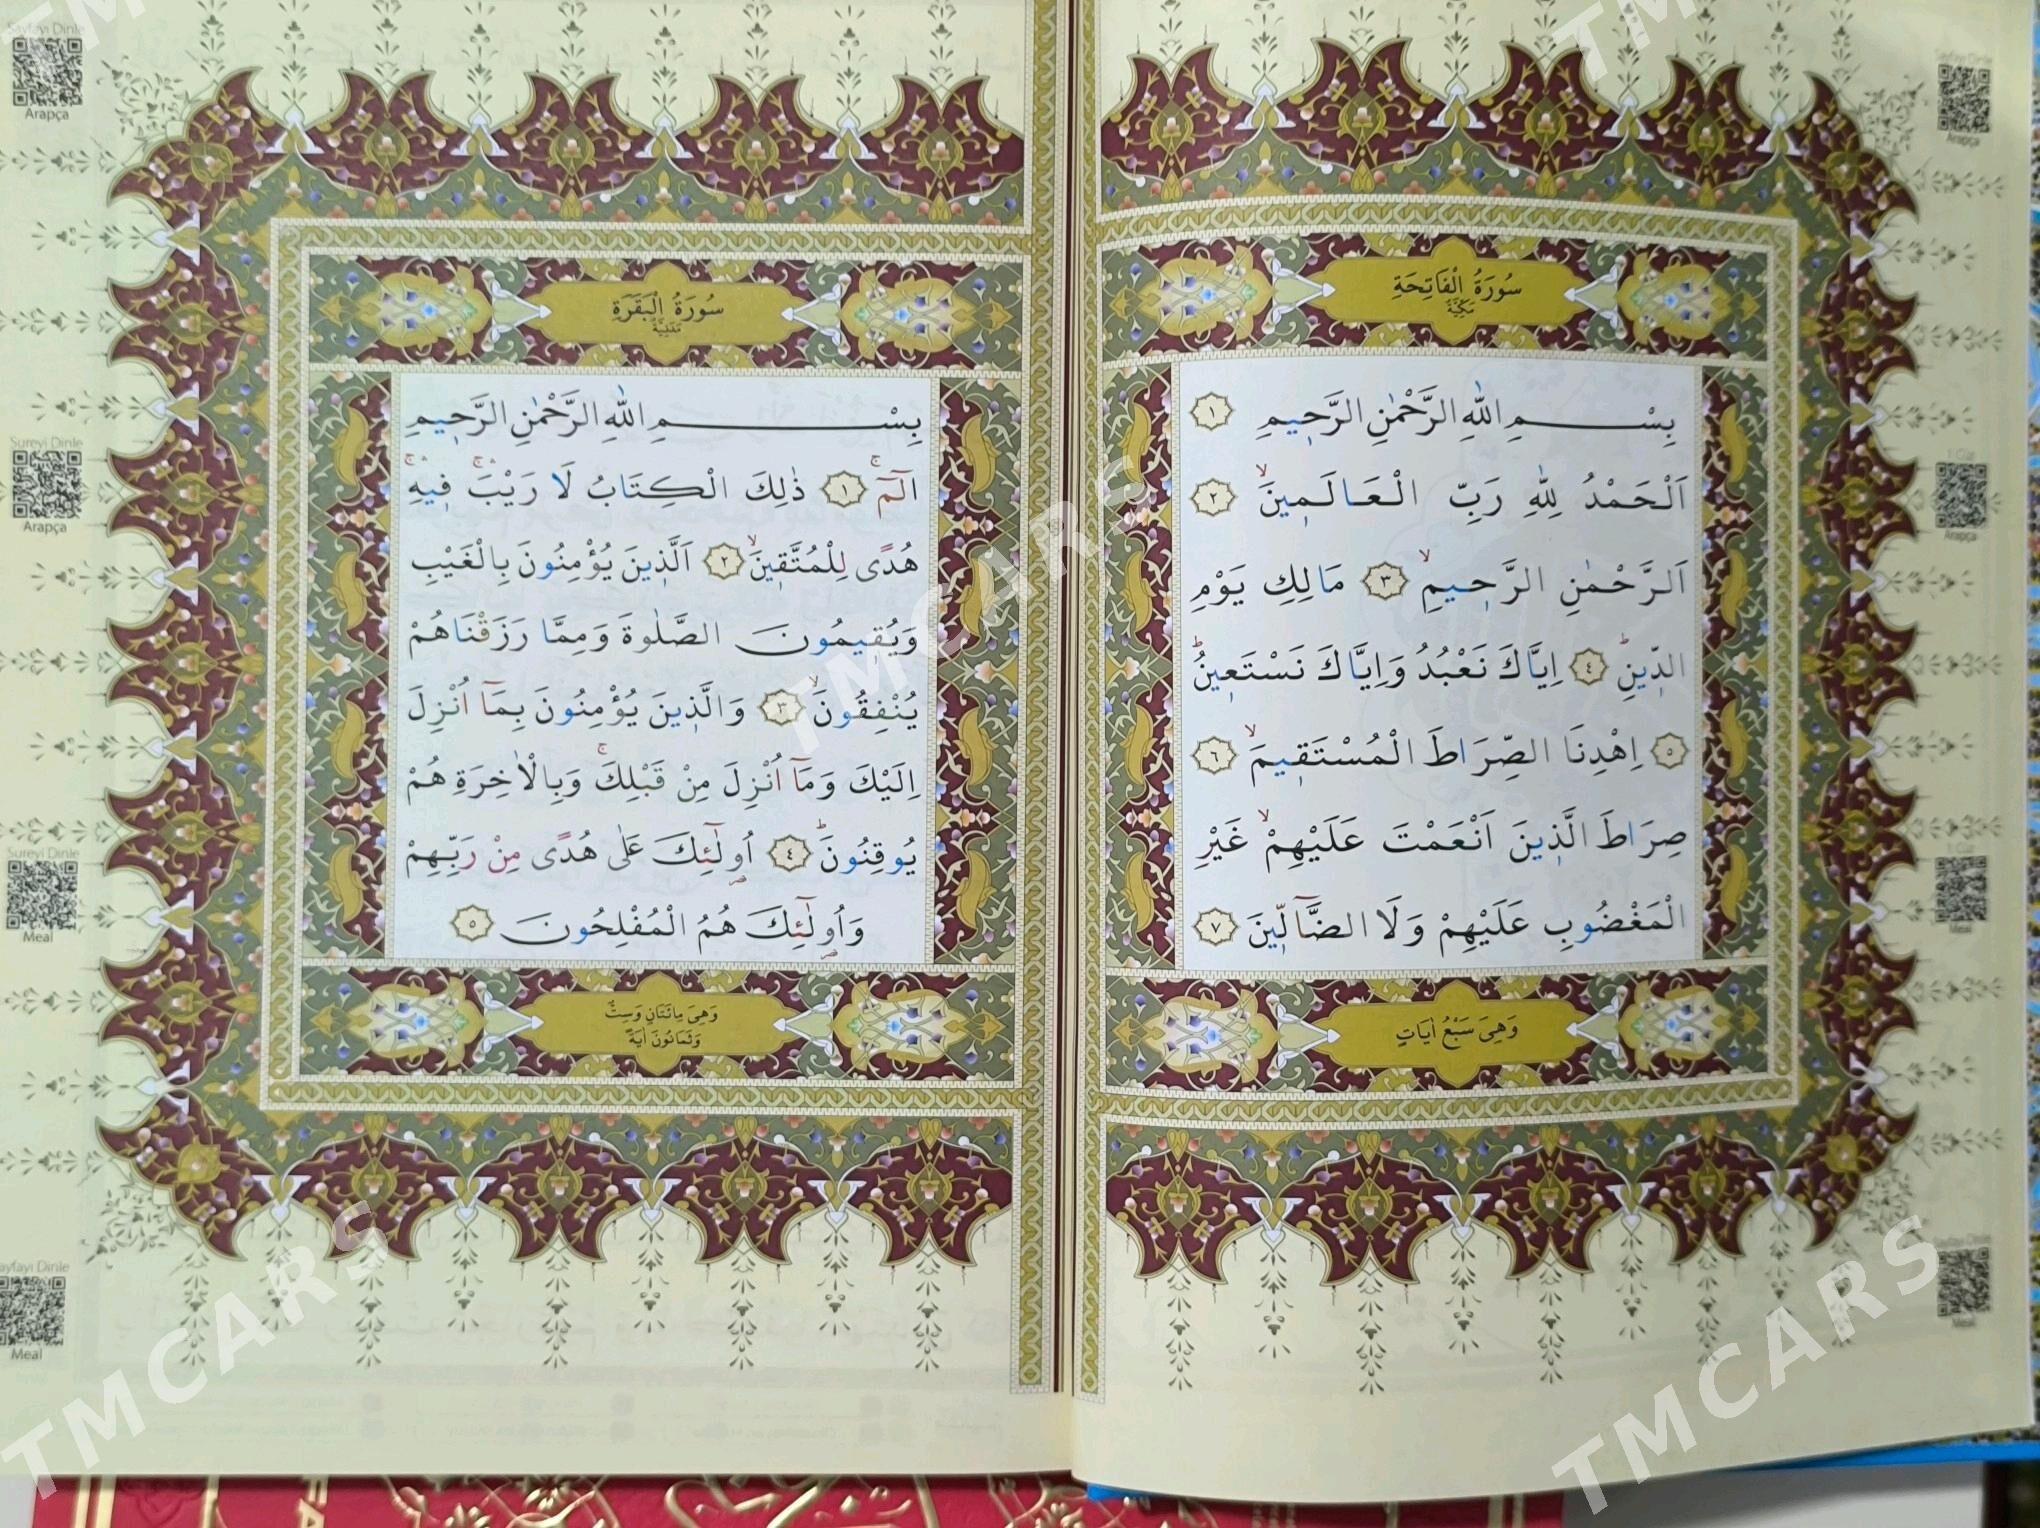 سُورَةُ الْفَاتِحَةِ
مَكِّيَّةٌ
بِسْمِ اللّٰهِ الرَّحْمٰنِ الرَّحِيمِ ﴿١﴾
اَلْحَمْدُ لِلّٰهِ رَبِّ الْعَالَمِينَۙ ﴿٢﴾
اَلرَّحْمٰنِ الرَّحِيمِۙ ﴿٣﴾ مَالِكِ يَوْمِ
الدِّينِۜ ﴿٤﴾ اِيَّاكَ نَعْبُدُ وَاِيَّاكَ نَسْتَعِينُۜ
﴿٥﴾ اِهْدِنَا الصِّرَاطَ الْمُسْتَقِيمَۙ ﴿٦﴾
صِرَاطَ الَّذِينَ اَنْعَمْتَ عَلَيْهِمْۙ غَيْرِ
الْمَغْضُوبِ عَلَيْهِمْ وَلَا الضَّٓالِّينَ ﴿٧﴾
وَهِيَ سَبْعُ اٰيَاتٍ
سُورَةُ الْبَقَرَةِ
مَدَنِيَّةٌ
بِسْمِ اللّٰهِ الرَّحْمٰنِ الرَّحِيمِ
الٓمٓۚ ﴿١﴾ ذٰلِكَ الْكِتَابُ لَا رَيْبَۚۛ فِيهِۚۛ
هُدًى لِلْمُتَّقِينَۙ ﴿٢﴾ اَلَّذِينَ يُؤْمِنُونَ بِالْغَيْبِ
وَيُقِيمُونَ الصَّلٰوةَ وَمِمَّا رَزَقْنَاهُمْ
يُنْفِقُونَۙ ﴿٣﴾ وَالَّذِينَ يُؤْمِنُونَ بِمَٓا اُنْزِلَ
اِلَيْكَ وَمَٓا اُنْزِلَ مِنْ قَبْلِكَۚ وَبِالْاٰخِرَةِ هُمْ
يُوقِنُونَۜ ﴿٤﴾ اُو۬لٰٓئِكَ عَلٰى هُدًى مِنْ رَبِّهِمْ
وَاُو۬لٰٓئِكَ هُمُ الْمُفْلِحُونَ ﴿٥﴾
وَهِيَ مِائَتَانِ وَسِتٌّ
وَثَمَانُونَ اٰيَةً
Sayfayı Dinle
Arapça
Sureyi Dinle
Arapça
Sureyi Dinle
Meal
Sayfayı Dinle
Meal
Arapça
Arapça
Meal
Meal
TMCARS
TMCARS
TMCARS
TMCARS